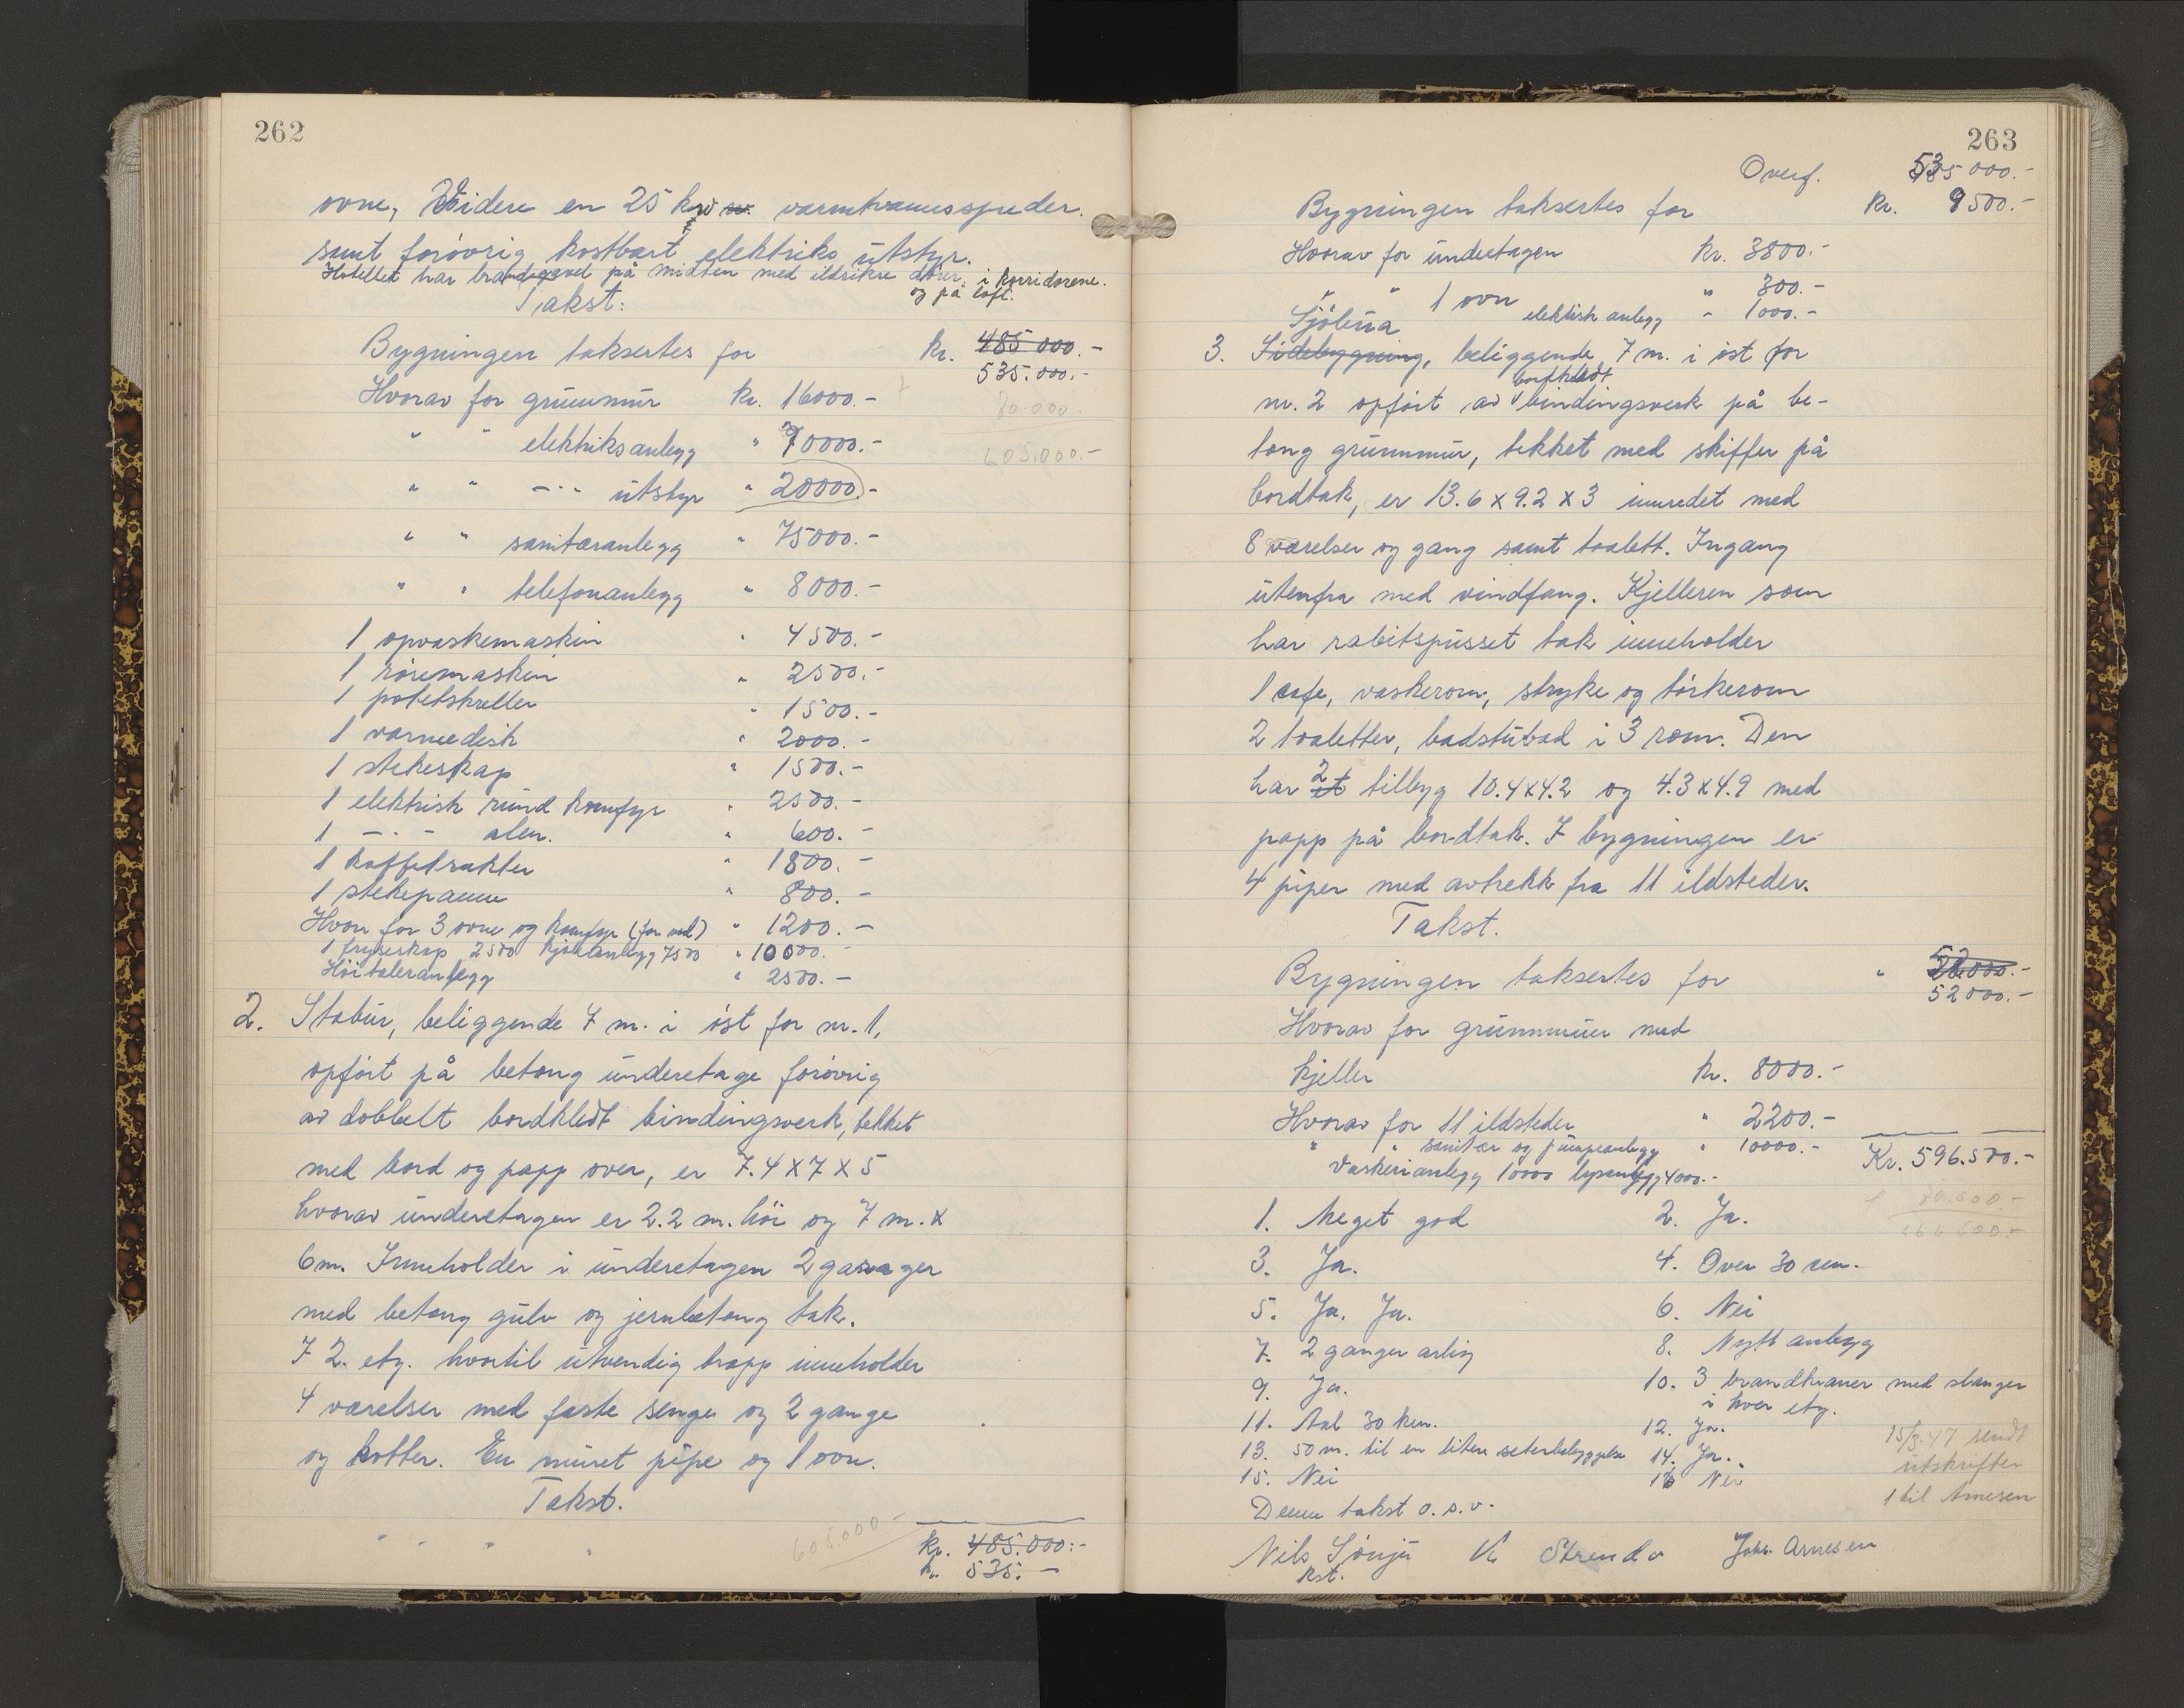 262
ovne, Videre en 25 kw varmtvannsspreder.
samt forøvrig kostbart elektriks utstyr.
Hotellet har brandgavl på midten med ildsikre dører i korridorene.
og på loft.
Takst:
Bygningen taksertes for kr. 485 000.-
535.000.-
Hvorav for grunnmur kr. 16000.-
70.000.
" " elektriksanlegg " 70000.-
605.000.-
" " -"- utstyr " 20000.-
" " sanitæranlegg " 75000.-
" " telefonanlegg " 8000.-
1 opvaskemaskin " 4500.-
1 røremaskin " 2500.-
1 potetskreller " 1500.-
1 varmedisk " 2000.-
1 stekeskap " 1500.-
1 elektrisk rund komfyr " 2500.-
1 -"- alm. " 600.-
1 kaffetrakter " 1800.-
1 stekepanne " 800.-
Hvorav for 3 ovne og komfyr (for ved) " 1200.-
1 fryseskap 2500 kjøleanlegg 7500 " 10000.-
Høitaleranlegg " 2500.-
2. Stabur, beliggende 7 m. i øst for nr. 1,
opført på betong underetage forøvrig
av dobbelt bordkledt bindingsverk, tekket
med bord og papp over, er 7.4 x 7 x 5
hvorav underetagen er 2.2 m. høi og 7 m. x
6m. Inneholder i underetagen 2 garager
med betong gulv og jernbetong tak.
I 2. etg. hvortil utvendig trapp inneholder
4 værelser med faste senge og 2 gange
og kotter. En muret pipe og 1 ovn.
Takst.
605.000.-
kr. 485.000:-
kr. 535. -
263
Overf. 535 000.-
Bygningen taksertes for kr. 9500.-
Hvorav for underetagen kr. 3800.-
" " 1 ovn " 300.-
elektrisk anlegg " 1000.-
Sjøbua
3. Sidebygning, beliggende 7 m. i øst for
bordkledt
nr. 2 opført av bindingsverk på be-
tong grunnmur, tekket med skiffer på
bordtak, er 13.6 x 9.2 x 3 innredet med
8 værelser og gang samt toalett. Ingang
utenfra med vindfang. Kjelleren som
har rabitspusset tak inneholder
1 cafe, vaskerom, stryke og tørkerom
2 toaletter, badstubad i 3 rom. Den
har 2 et tilbyg 10.4x4.2 og 4.3x4.9 med
papp på bordtak. I bygningen er
4 piper med avtrekk fra 11 ildsteder.
Takst.
Bygningen taksertes for " 52000.-
52000.-
Hvorav for grunnmur med
kjeller kr. 8000.-
Hvorav for 11 ildsteder " 2200.-
" " sanitær og pumpeanlegg " 10000.-
Kr. 596.500.-
Vaskerianlegg 10000 lysanlegg 4000.-
70.000.-
666 500.-
1. Meget god 2. Ja.
3. Ja. 4. Over 30 cm.
5. Ja. Ja. 6. Nei
7. 2 ganger årlig 8. Nytt anlegg
9. Ja. 10. 3 brandkraner med slanger
i hver etg.
11. Aal 30 km. 12. Ja.
13. 50 m. til en liten seterbebyggelse 14. Ja.
15. Nei 16 Nei
15/3-47 sendt
utskrifter
1 til Arnesen
Denne takst o.s.v.
Nils Sønju K Strenda Johs. Arnesen
kst.